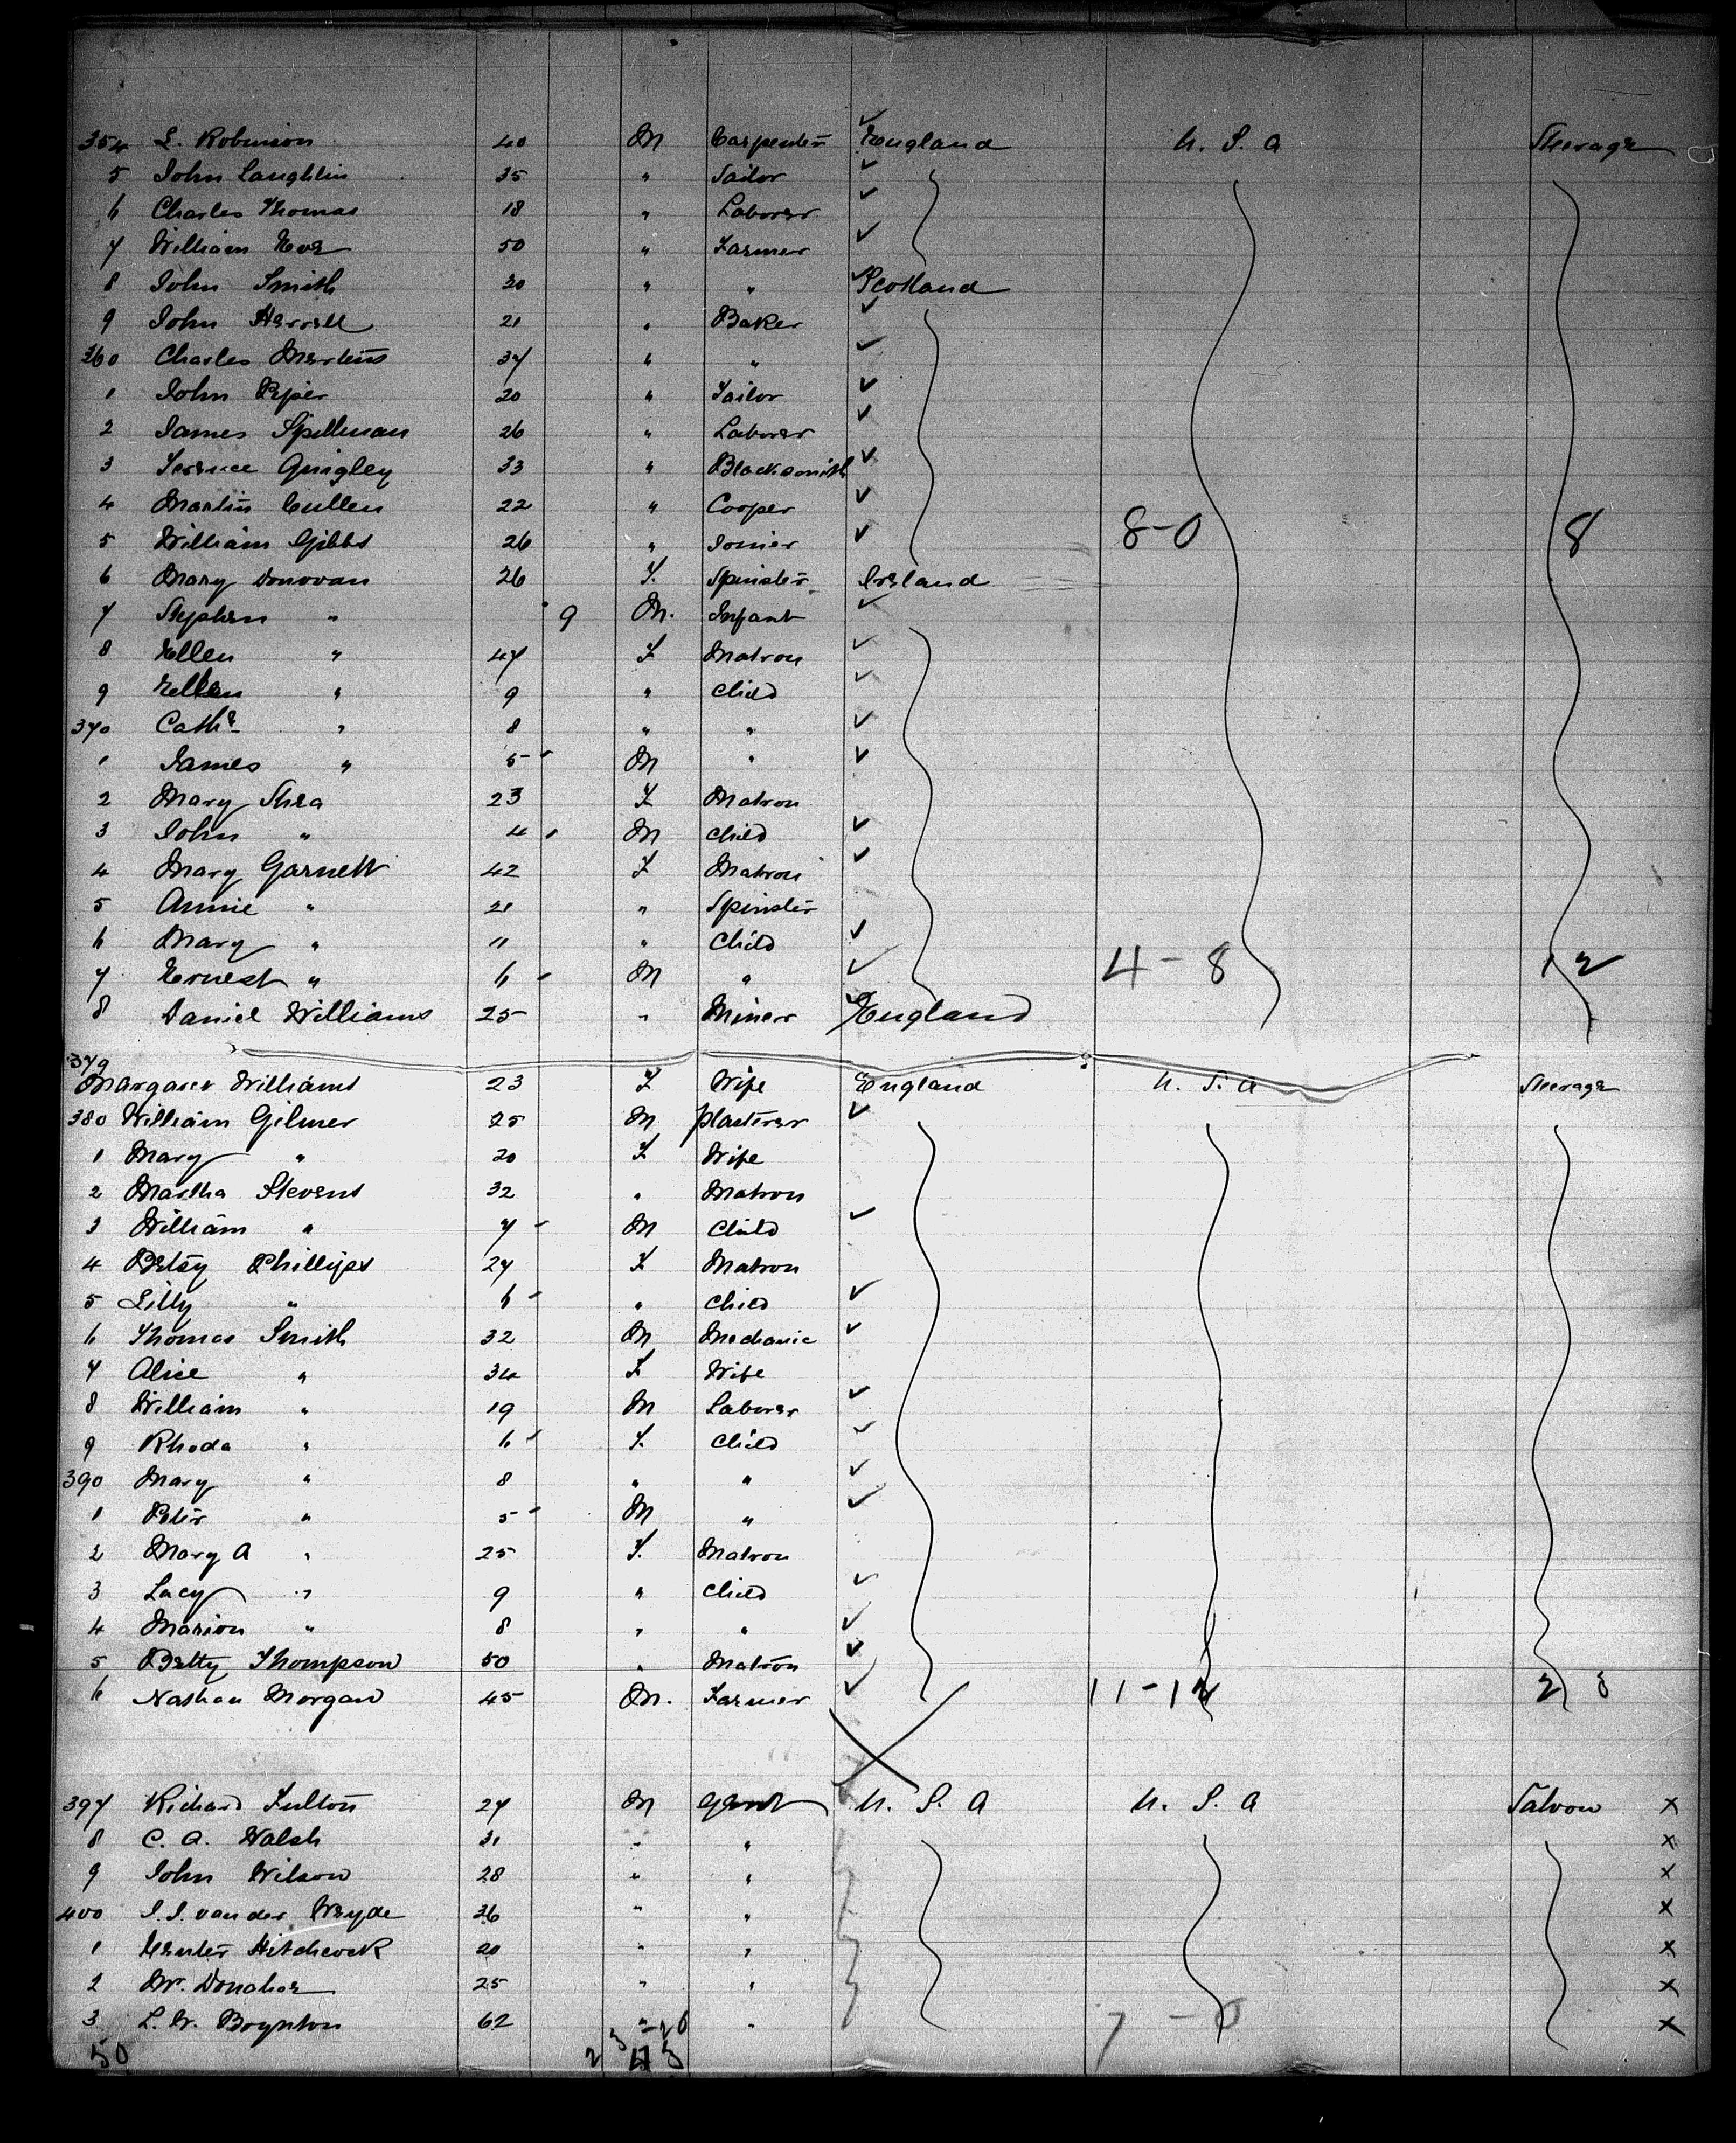 354 L. Robinson 40 M Carpenter England U. S. A Steerage
5 John Laughlin 35 " Sailor
6 Charles Thomas 18 " Laborer
7 William 50 " Farmer
8 John Smith 20 " " Scotland
9 John 21 " Baker
360 Charles Mertens 37 " "
1 John Piper 20 " Tailor
2 James Spillman 26 " Laborer
3 Terence Quigley 33 " Blacksmith
4 Martin Cullen 22 " Cooper
5 William Gibbs 26 " Joiner 8-0 8
6 Mary Donovan 26 F. Spinster Ireland
7 Stephen " 9 M. Infant
8 Ellen " 47 F Matron
9 Ellen " 9 " Child
370 Cathe " 8 " "
1 James " 5 M "
2 Mary Shea 23 F Matron
3 John " 4 M Child
4 Mary Garnett 42 F Matron
5 Annie " 21 " Spinster
6 Mary " 11 " Child
7 Ernest " 6 M " 4-8 12
8 Daniel Williams 25 " Miner England
379 Margaret Williams 23 F Wife England U. S. A Steerage
380 William Gilmer 25 M Plasterer
1 Mary " 20 F Wife
2 Martha Stevens 32 " Matron
3 William " 7 M Child
4 Betsy Phillips 27 F Matron
5 Lilly " 6 " Child
6 Thomas Smith 32 M Mechanic
7 Alice " 34 F Wife
8 William " 19 M Laborer
9 Rhoda " 6 F. Child
390 Mary " 8 " "
1 Peter " 5 M "
2 Mary A " 25 F. Matron
3 Lacy " 9 " Child
4 Marion " 8 " "
5 Betty Thompson 50 " Matron
6 Nathan Morgan 45 M. Farmer 11-12 23
397 Richard Fulton 27 M Gent U. S. A U. S. A Saloon x
8 C. A. Walsh 31 " " x
9 John Wilson 28 " " x
400 J. J. van der Weyde 36 " " x
1 Hitchcock 20 " " x
2 Mr. Donahoe 25 " " x
3 L. W. Boynton 62 " " 7-0 x
50